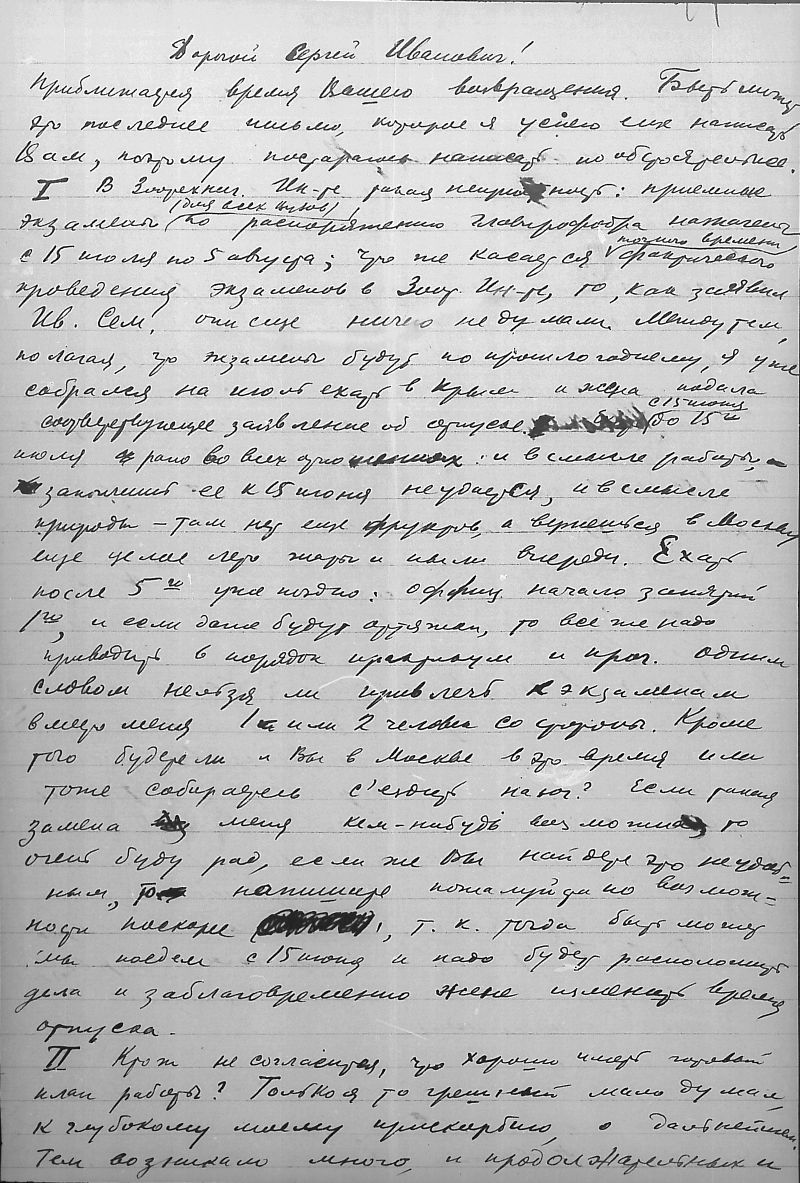 Дорогой Сергей Иванович!
Приближается время Вашего возвращения. Быть может
это последнее письмо, которое я успею еще написать
Вам, поэтому постараюсь написать по обстоятельнее.
I В Зоотехнич. Ин-те такая неприятность: приемные
(для всех вузов)
экзамены по распоряжению Главпрофобра назначены
с 15 июля по 5 августа; что же касается точного времени фактического
проведения экзаменов в Зоот. Ин-те, то, как заявил
Ив. Сем., они еще ничего не думали. Между тем,
полагая, что экзамены будут по прошлогоднему, я уже
собрался на июль ехать в Крым и жена подала
соответствующее заявление об отпуске. с 15 июня до 15го
июля рано во всех отношениях: и в смысле работы,
закончить ее к 15 июня не удается, и в смысле
природы – там нет еще фруктов, а вернешься в Москву
еще целое лето жары и пыли впереди. Ехать
после 5го уже поздно: оффиц. начало занятий
1го, и если даже будут оттяжки, то все же надо
приводить в порядок практикум и проч. Одним
словом нельзя ли привлечь к экзаменам
вместо меня 1 или 2 человек со стороны. Кроме
того будете ли и Вы в Москве в это время или
тоже собираетесь с'ездить на юг? Если такая
замена меня кем-нибудь возможна то
очень буду рад, если же Вы найдете это неудоб-
ным, напишите пожалуйста по возмож-
ности поскорее, т. к. тогда быть может
мы поедем с 15 июня и надо будет расположить
дела и заблаговременно жене изменить время
отпуска.
II Кто ж не согласится, что хорошо иметь готовый
план работы? Только я то грешный мало думал,
к глубокому моему прискорбию, о дальнейшем.
Тем возникало много, и продолжательных и